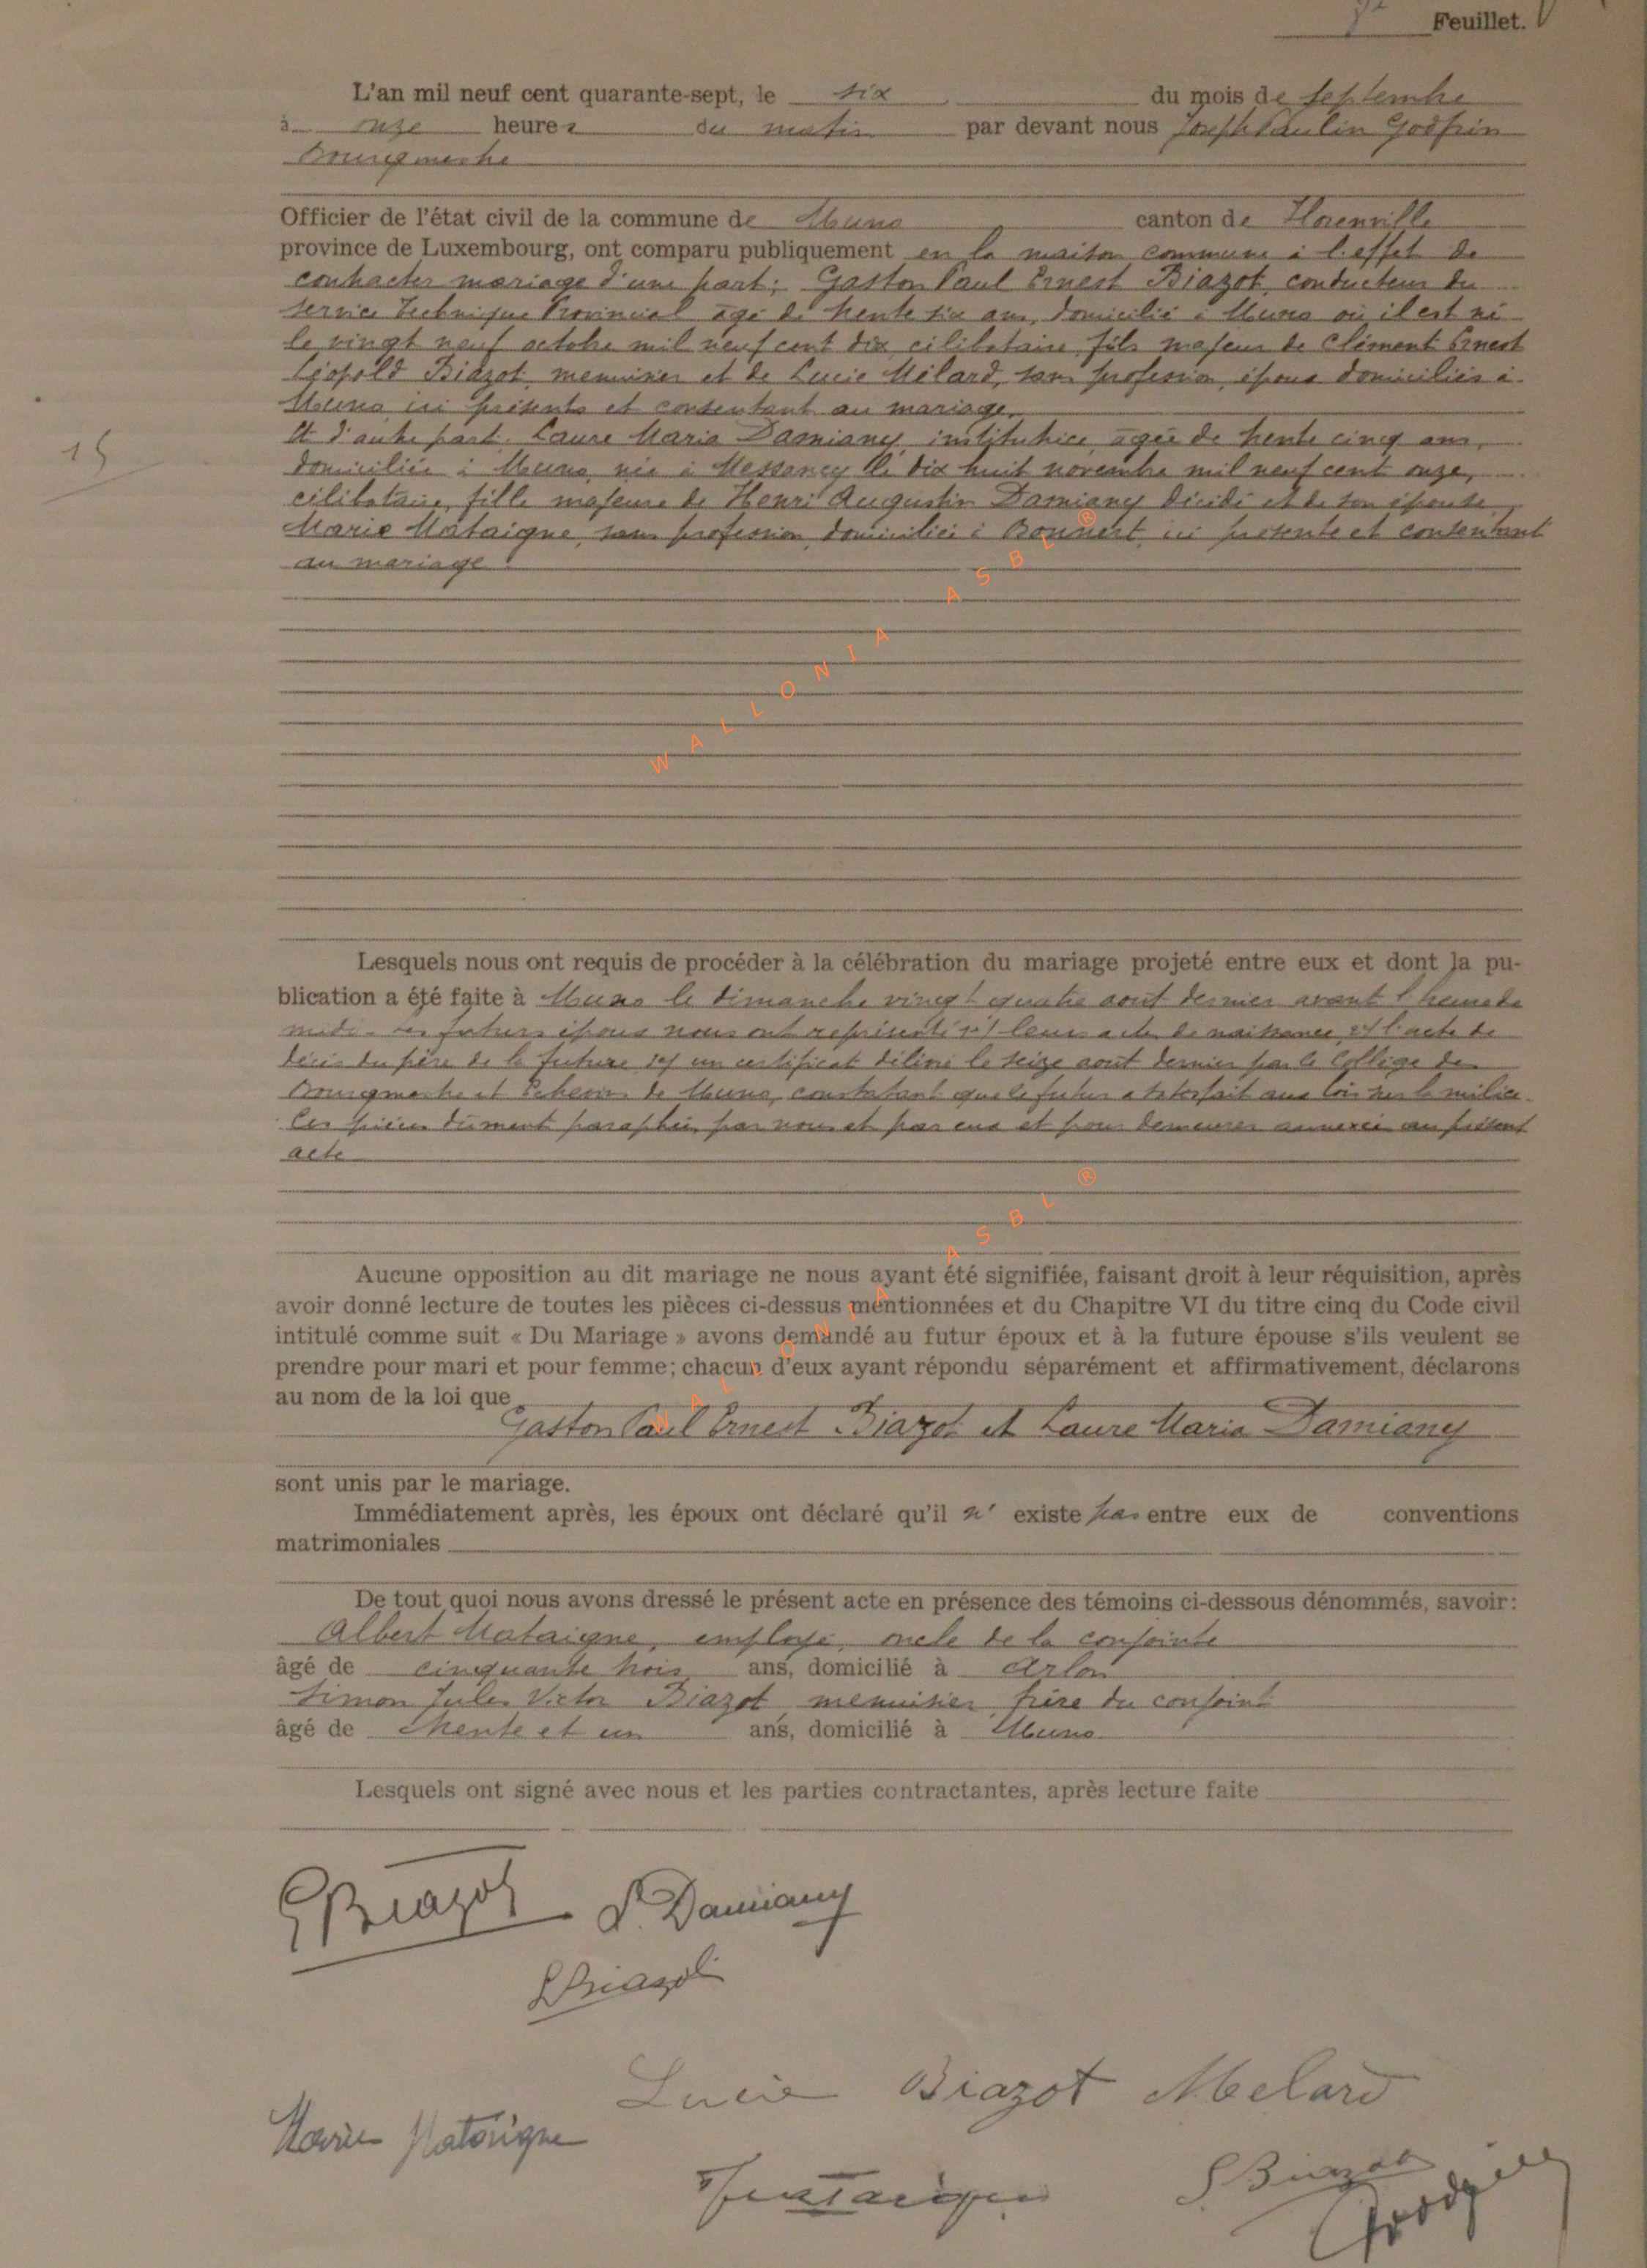 Feuillet.
L'an mil neuf cent quarante-sept, le six du mois de septembre
à onze heures du matin par devant nous Joseph Paulin Godfrin
Bourgmestre
Officier de l'état civil de la commune de Muno canton de Florenville
province de Luxembourg, ont comparu publiquement en la maison commune à l'effet de
contracter mariage d'une part: Gaston Paul Ernest Biazot, conducteur du
service Technique Provincial âgé de trente six ans, domicilié à Muno où il est né
le vingt neuf octobre mil neuf cent dix célibataire, fils majeur de Clément Ernest
Léopold Biazot, menuisier et de Lucie Mélard, sans profession, époux domiciliés à
Muno ici présents et consentant au mariage.
Et d'autre part. Laure Maria Damiany institutrice, âgée de trente cinq ans,
domiciliée à Muno, née à Messancy le dix huit novembre mil neuf cent onze,
15
célibataire, fille majeure de Henri Augustin Damiany décédé et de son épouse
Marie Mataigne, sans profession domiciliée à Bonnert ici présente et consentant
au mariage.
WALLONIA ASBL ®
Lesquels nous ont requis de procéder à la célébration du mariage projeté entre eux et dont la pu-
blication a été faite à Muno le dimanche vingt quatre août dernier avant l'heure de
midi. Les futurs époux nous ont représenté 1°) leurs acte de naissance, 2°) l'acte de
décès du père de la future 3°) un certificat délivré le seize août dernier par le Collège des
Bourgmestre et Echevins de Muno, constatant que le futur a satisfait aux lois sur la milice.
Ces pièces dûment paraphées par nous et par eux et pour demeurer annexées au présent
acte
WALLONIA ASBL ®
Aucune opposition au dit mariage ne nous ayant été signifiée, faisant droit à leur réquisition, après
avoir donné lecture de toutes les pièces ci-dessus mentionnées et du Chapitre VI du titre cinq du Code civil
intitulé comme suit « Du Mariage » avons demandé au futur époux et à la future épouse s'ils veulent se
prendre pour mari et pour femme; chacun d'eux ayant répondu séparément et affirmativement, déclarons
au nom de la loi que
Gaston Paul Ernest Biazot et Laure Maria Damiany
sont unis par le mariage.
Immédiatement après, les époux ont déclaré qu'il n' existe pas entre eux de conventions
matrimoniales
De tout quoi nous avons dressé le présent acte en présence des témoins ci-dessous dénommés, savoir:
Albert Mataigne, employé, oncle de la conjointe
âgé de cinquante trois ans, domicilié à Arlon
Simon Jules Victor Biazot menuisier frère du conjoint
âgé de trente et un ans, domicilié à Muno
Lesquels ont signé avec nous et les parties contractantes, après lecture faite
GBiazot L. Damiany
EBiazot
Lucie Biazot Melard
Marie Mataigne
Mataigne SBiazot